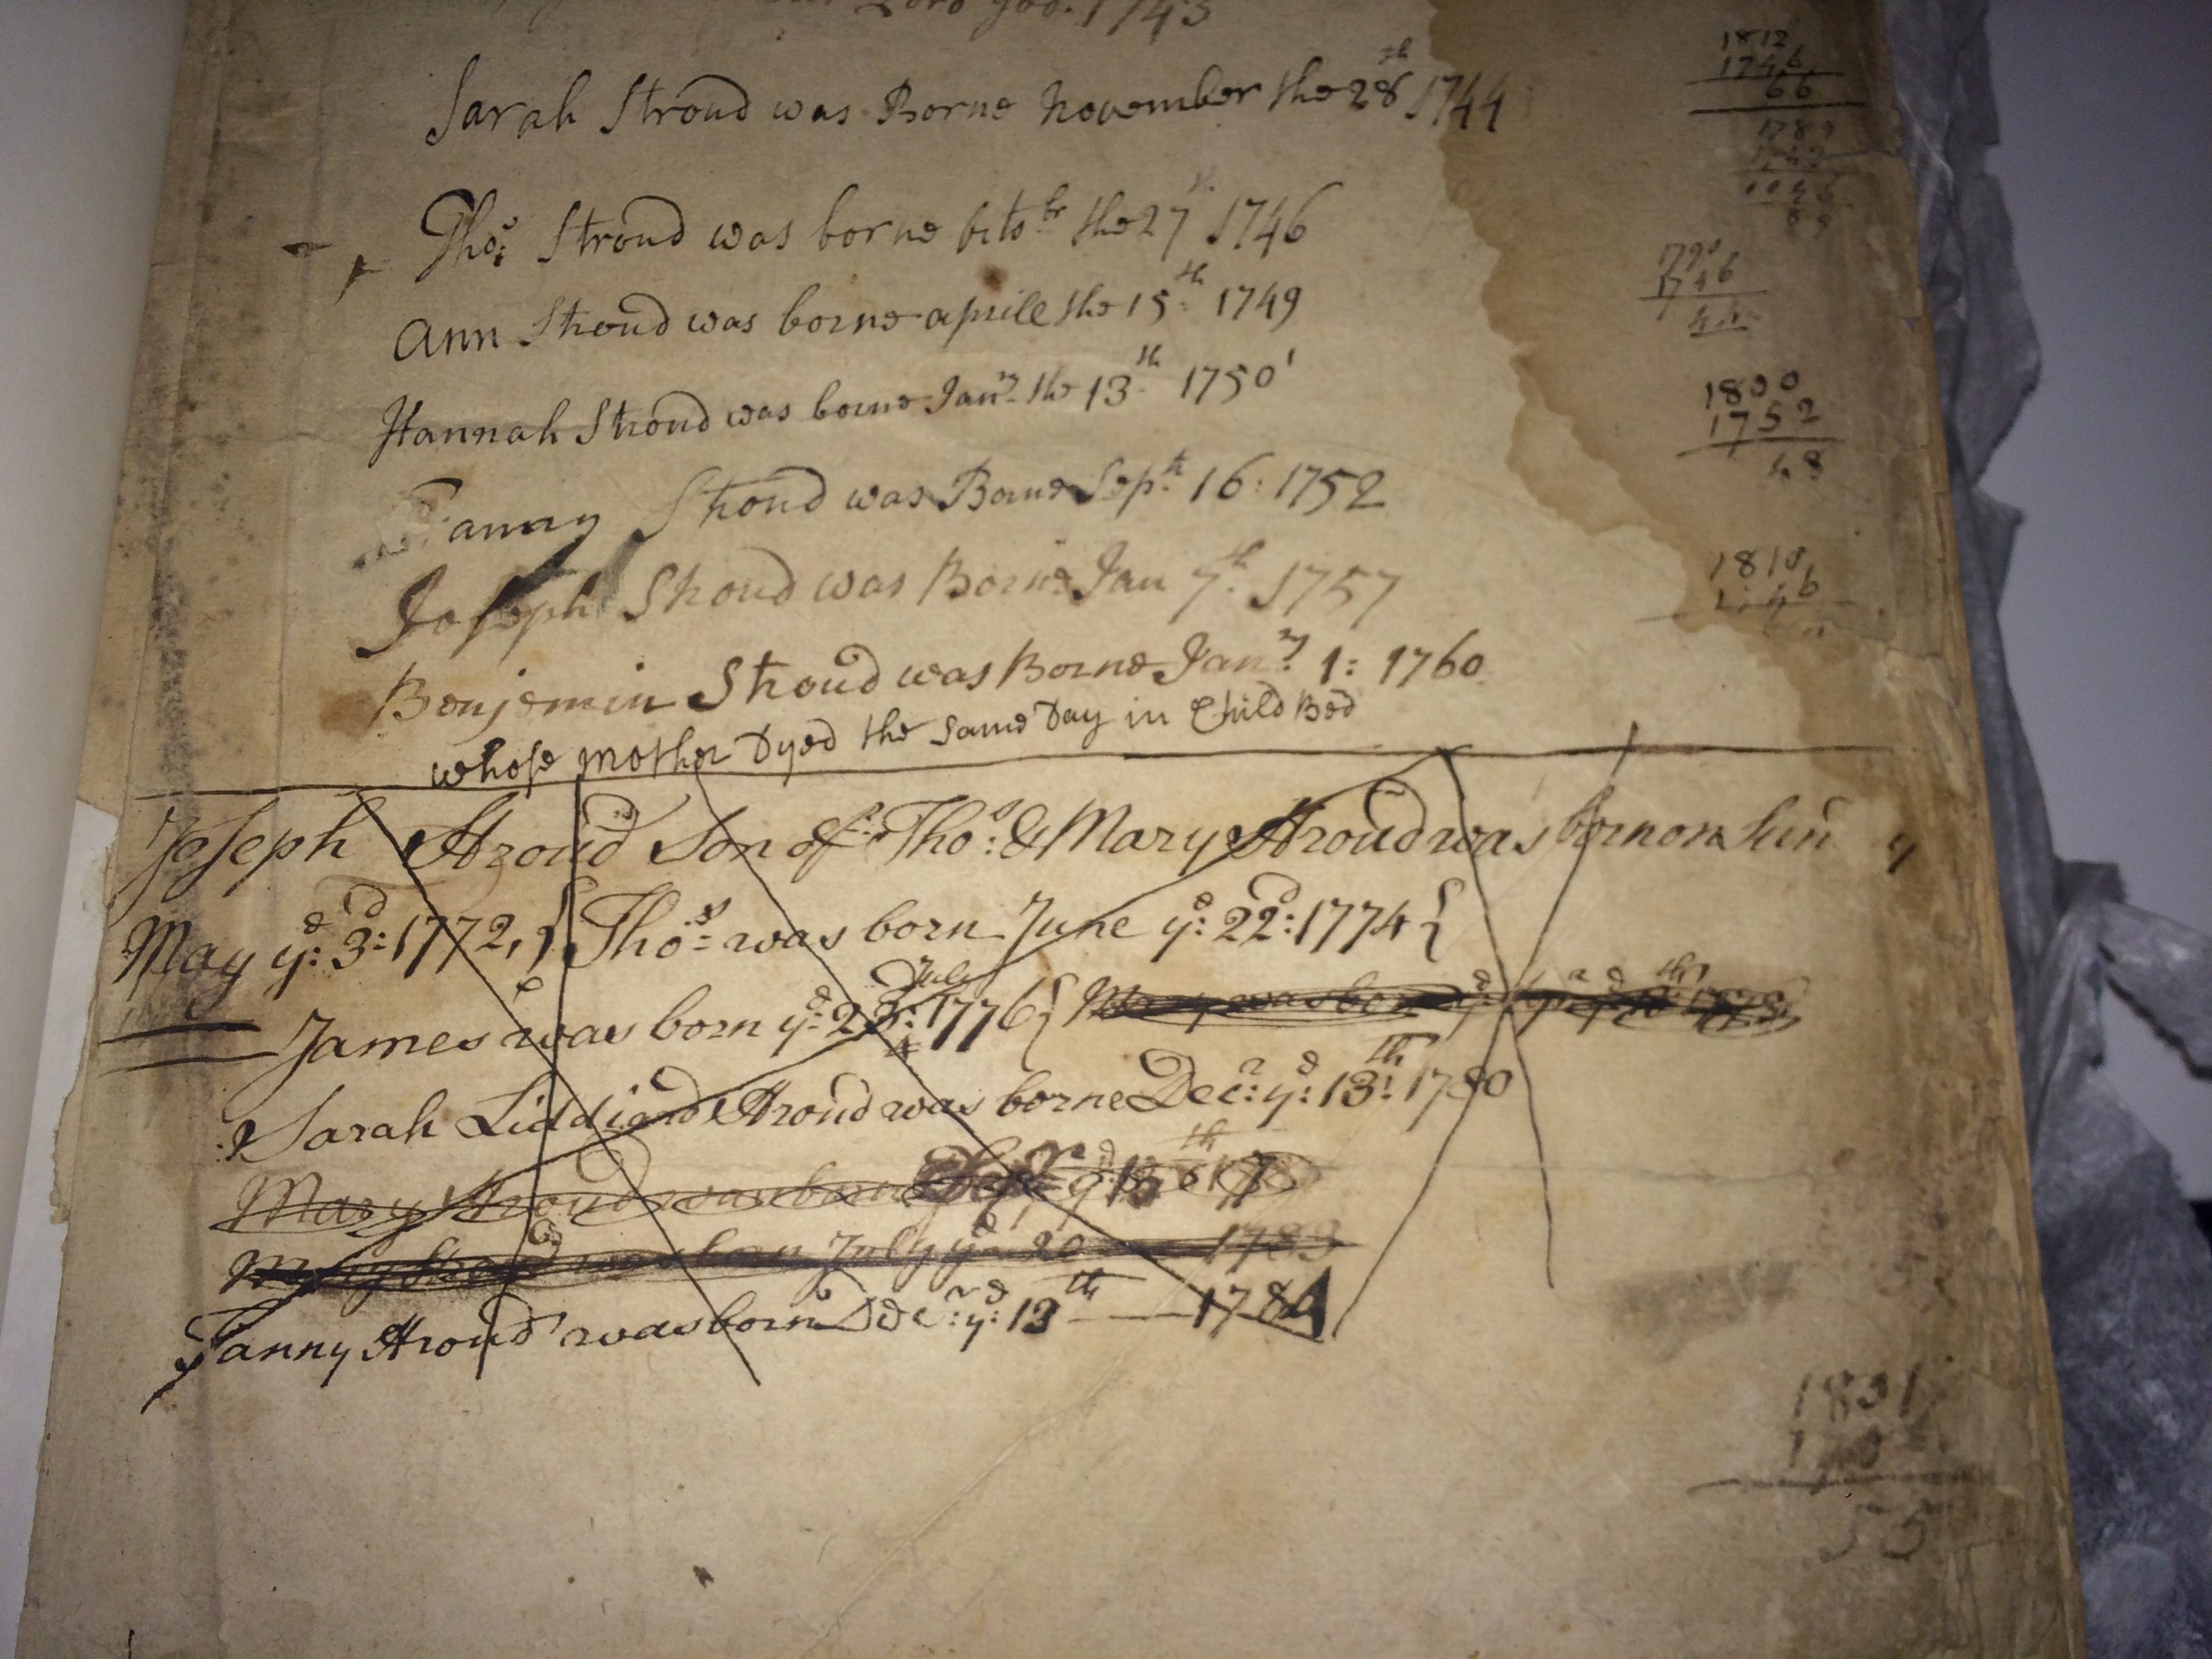 Lord God. 1743
Sarah Stroud was Borne November the 28th 1744
Thos: Stroud was borne the 27th 1746
Ann Stroud was borne aprill the 15th 1749
Hannah Stroud was borne Janry the 13th 1750/1
Fanny Stroud was Borne Sept 16: 1752
Joseph Stroud was Borne Jan 7th 1757
Benjemin Stroud was Borne Janry 1: 1760
whose mother Dyed the same Day in Child Bed
Joseph Stroud Son of Thos: & Mary Stroud was born on Sund y
May yd: 3d: 1772, } Thos: was born June yd: 22d: 1774 {
July
James was born yd: 23: 1776 { Mary was born
4
Sarah Liddiard Stroud was borne Decr: yd: 13th: 1780
Mary Stroud was born Sepr yd 13th
Mary Stroud was born July yd 20 1783
Fanny Stroud was born Decr: yd: 13th — 1784
1812
1746
66
1789
1790
1746
44
1800
1752
48
1810
1831
55